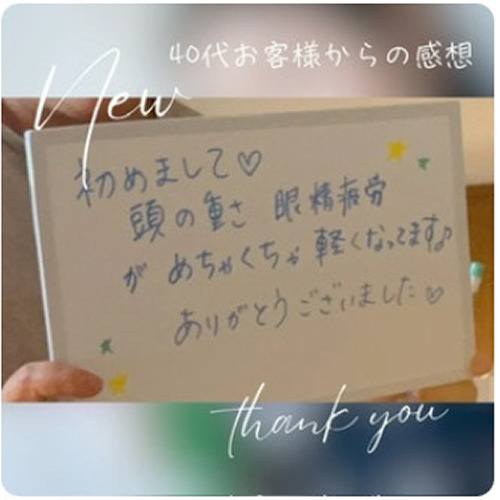 40代お客様からの感想
New
初めまして♡
頭の重さ 眼精疲労
が めちゃくちゃ 軽くなってます♪
ありがとうございました♡
thank you